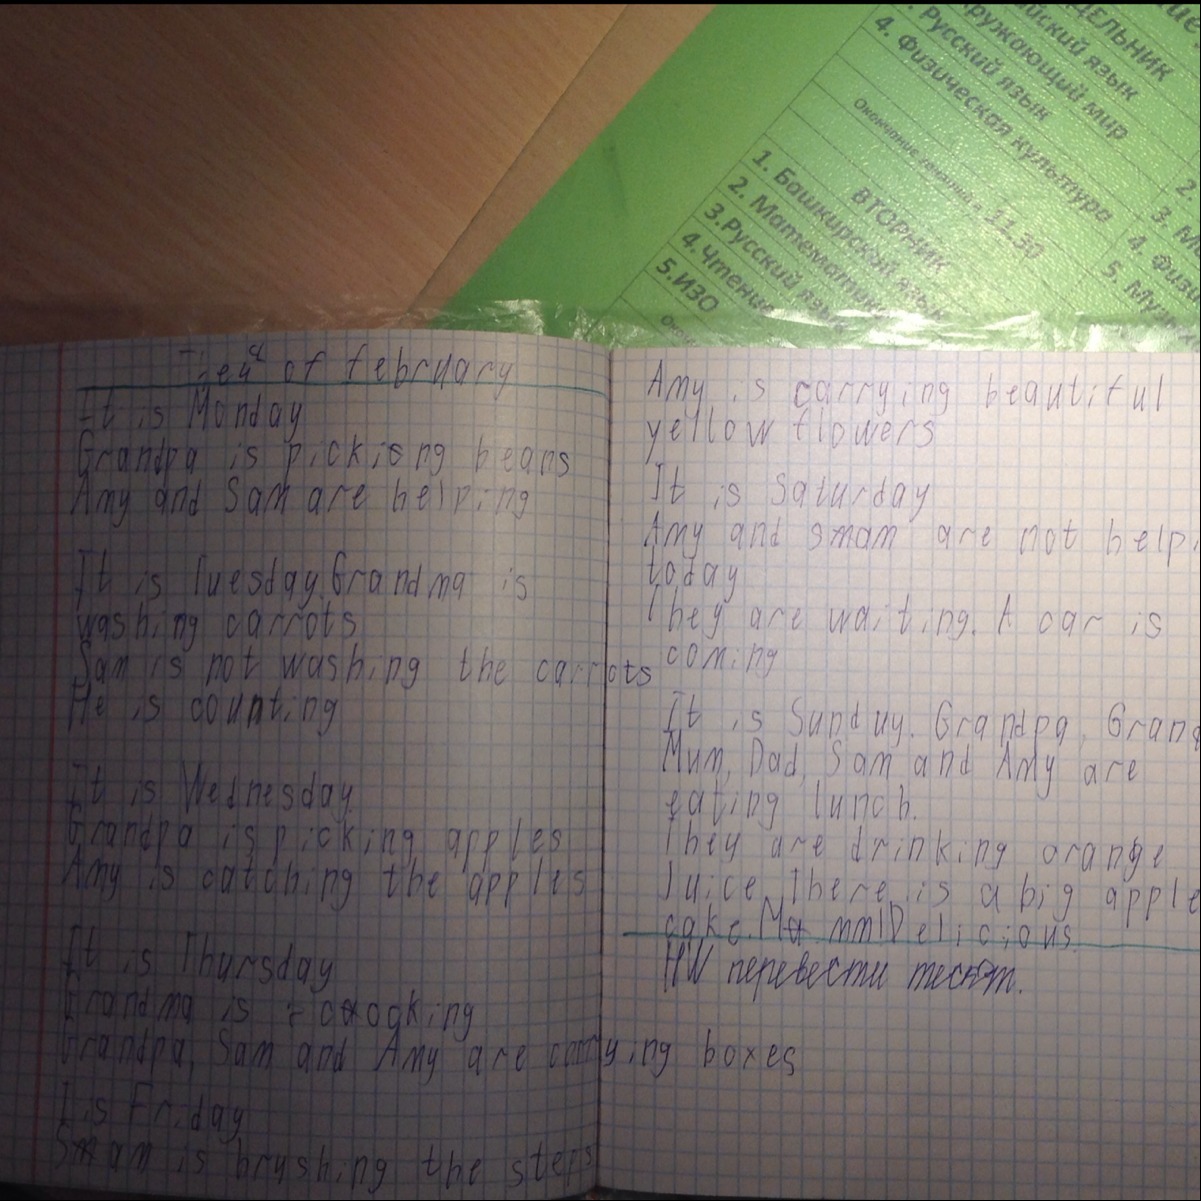 НЕДЕЛЬНИК
ружающий мир
Русский язык
4. Физическая культура
11.30
ВТОРНИК
1. Башкирский язык
2. Математика
3.Русский язык
4.Чтение
5.ИЗО
2.
3. М
4. Физи
5. Музы
of february
It is Monday
Grandpa is pickisng beans
Amy and Sam are helping
It is Tuesday.Grandma is
washing carrots
Sam is not washing the carrots
He is counting
It is Wednesday.
Grandpa is picking apples
Amy is catching the apples
It is Thursday
Grandma is cooking
Grandpa, Sam and Amy are carrying boxes
I is Friday
Smam is brushing the steps
Amy is carrying beautiful
yellow flowers
It is Saturday
Amy and smam are not helpi
today
They are waiting. A car is
coming
It is Sunduy. Grandpa, Grand
Mum, Dad, Sam and Amy are
eating lunch.
They are drinking orange
Juice. There is a big apple
cake. mm!Delicious
HW перевести текст.